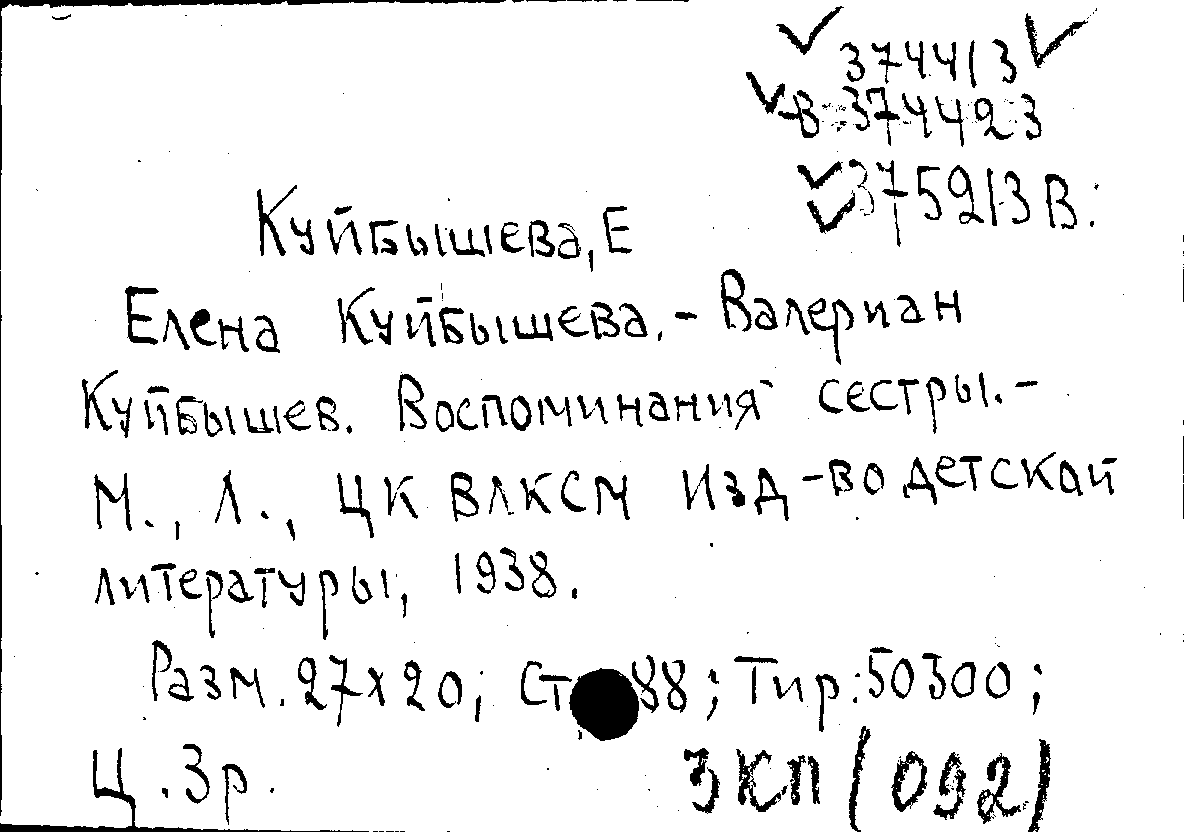 374413
В 374423
375913 В.
Куйбышева, Е
Елена Куйбышева.- Валериан
Куйбышев. Воспоминания сестры.-
М., Л., ЦК ВЛКСМ Изд-во детской
литературы, 1938.
Разм. 27x20; Ст 88; Тир: 50300;
Ц. 3р. 3КП (092)